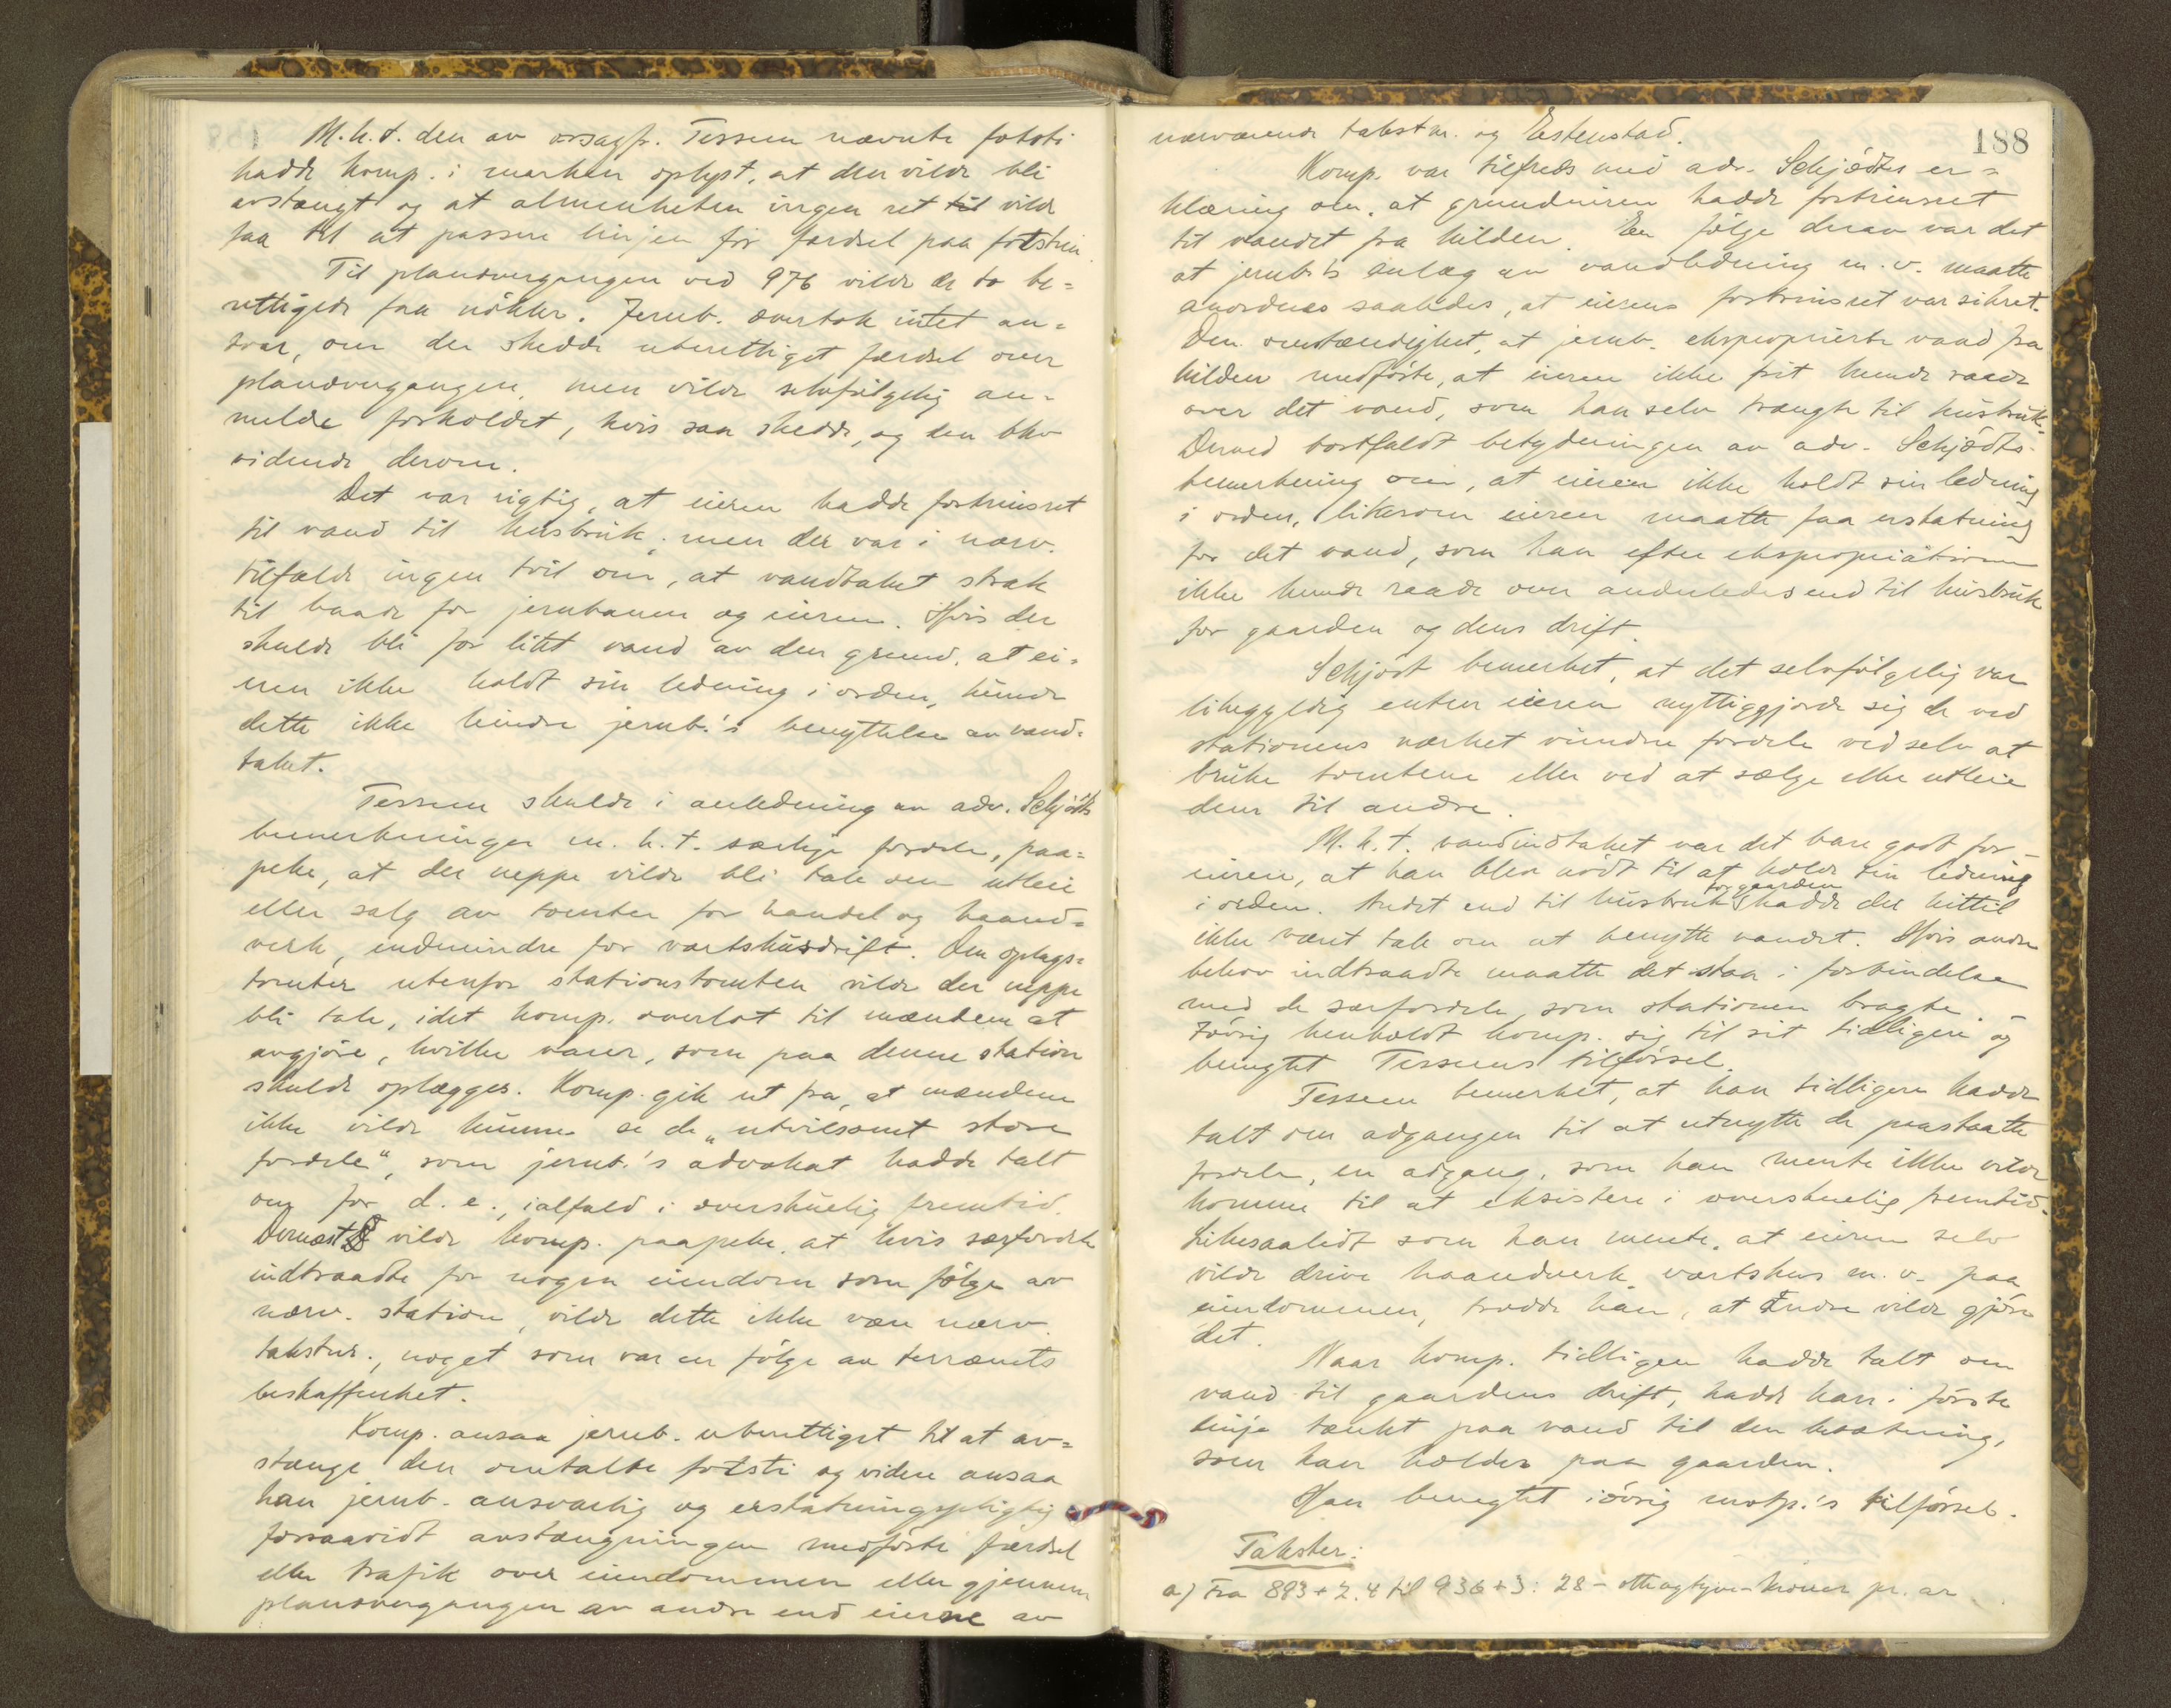 M.h.t. den av orsagf. Tessem nævnte fotsti
hadde komp. i marken oplyst, at den vilde bli
avstængt og at almenheten ingen ret til vilde
faa til at passere linjen for færdsel paa fotstien.
Til planovergangen ved 976 vilde de to be-
rettigede faa nökler. Jernb. overtok intet an-
svar, om der skedde uberettiget færdsel over
planovergangen, men vilde selvfölgelig an-
melde forholdet, hvis saa skedde, og den blev
vidende derom.
Det var rigtig, at eieren hadde fortrinsret
til vand til husbruk; men der var i nærv.
tilfælde ingen tvil om, at vandtaket strak
til baade for jernbanen og eieren. Hvis der
skulde bli for litet vand av den grund, at ei-
eren ikke holdt sin ledning i orden, kunde
dette ikke hindre jernb.'s benyttelse av vand-
taket.
Tessem skulde i anledning av adv. Schjödts
bemerkninger m.h.t. særlige fordele, paa-
peke, at der neppe vilde bli tale om utleie
eller salg av tomter for handel og haand-
verk, endmindre for vertshusdrift. Om oplags-
tomter utenfor stationstomten vilde der neppe
bli tale, idet komp. overlot til mændene at
avgjöre, hvilke varer, som paa denne station
skulde oplægges. Komp. gik ut fra, at mændene
ikke vilde kunne se de „utvilsomt store
fordele", som jernb.'s advokat hadde talt
om for d. e., ialfald i overskuelig fremtid.
Dernæst vilde komp. paapeke, at hvis særfordele
indtraadte for nogen eiendom som fölge av
nærv. station, vilde dette ikke være nærv.
takstnr., noget som var en fölge av terrænets
beskaffenhet.
Komp. ansaa jernb. uberettiget til at av-
stænge den omtalte fotsti og videre ansaa
han jernb. ansvarlig og erstatningspligtig
forsaavidt avstængningen medförte færdsel
eller trafik over eiendommen eller gjennem
planovergangen av andre end eierne av
188
nærværende takstnr. og Estenstad.
Komp. var tilfreds med adv. Schjödts er-
klæring om, at grundeieren hadde fortrinsret
til vandet fra kilden. En fölge derav var det
at jernb.'s anlæg av vandledning m.v. maatte
anordnes saaledes, at eierens fortrinsret var sikret.
Den omstændighet, at jernb. eksproprierte vand fra
kilden medförte, at eieren ikke frit kunde raade
over det vand, som han selv trængte til husbruk.
Dermed bortfaldt betydningen av adv. Schjödts
bemerkning om, at eieren ikke holdt sin ledning
i orden, likesom eieren maatte faa erstatning
for det vand, som han efter ekspropriationen
ikke kunde raade over anderledes end til husbruk
for gaarden og dens drift.
Schjödt bemerket, at det selvfölgelig var
likegyldig enten eieren nyttiggjorde sig de ved
stationens nærhet vundne fordele ved selv at
bruke tomtene eller ved at sælge eller utleie
dem til andre.
M.h.t. vandindtaket var det bare godt for
eieren, at han blev nödt til at holde sin ledning
i orden. Andet end til husbruk for gaarden hadde der hittil
ikke været tale om at benytte vandet. Hvis andre
behov indtraadte maatte det staa i forbindelse
med de særfordele, som stationen bragte.
Iövrig henholdt komp. sig til sit tidligere og
benegtet Tessems tilförsel.
Tessem bemerket, at han tidligere hadde
talt om adgangen til at utnytte de paastaatte
fordele, en adgang, som han mente ikke vilde
komme til at eksistere i overskuelig fremtid.
Likesaalidt som han mente, at eieren selv
vilde drive haandverk, vertshus m.v. paa
eiendommen, trodde han, at andre vilde gjöre
det.
Naar komp. tidligere hadde talt om
vand til gaardens drift, hadde han i förste
linje tænkt paa vand til den besætning,
som han holder paa gaarden.
Han benegtet iövrig motp.'s tilförsel.
Takster:
a) Fra 893+2.4 til 936+3: 28 - otteogtyve - kroner pr. ar.